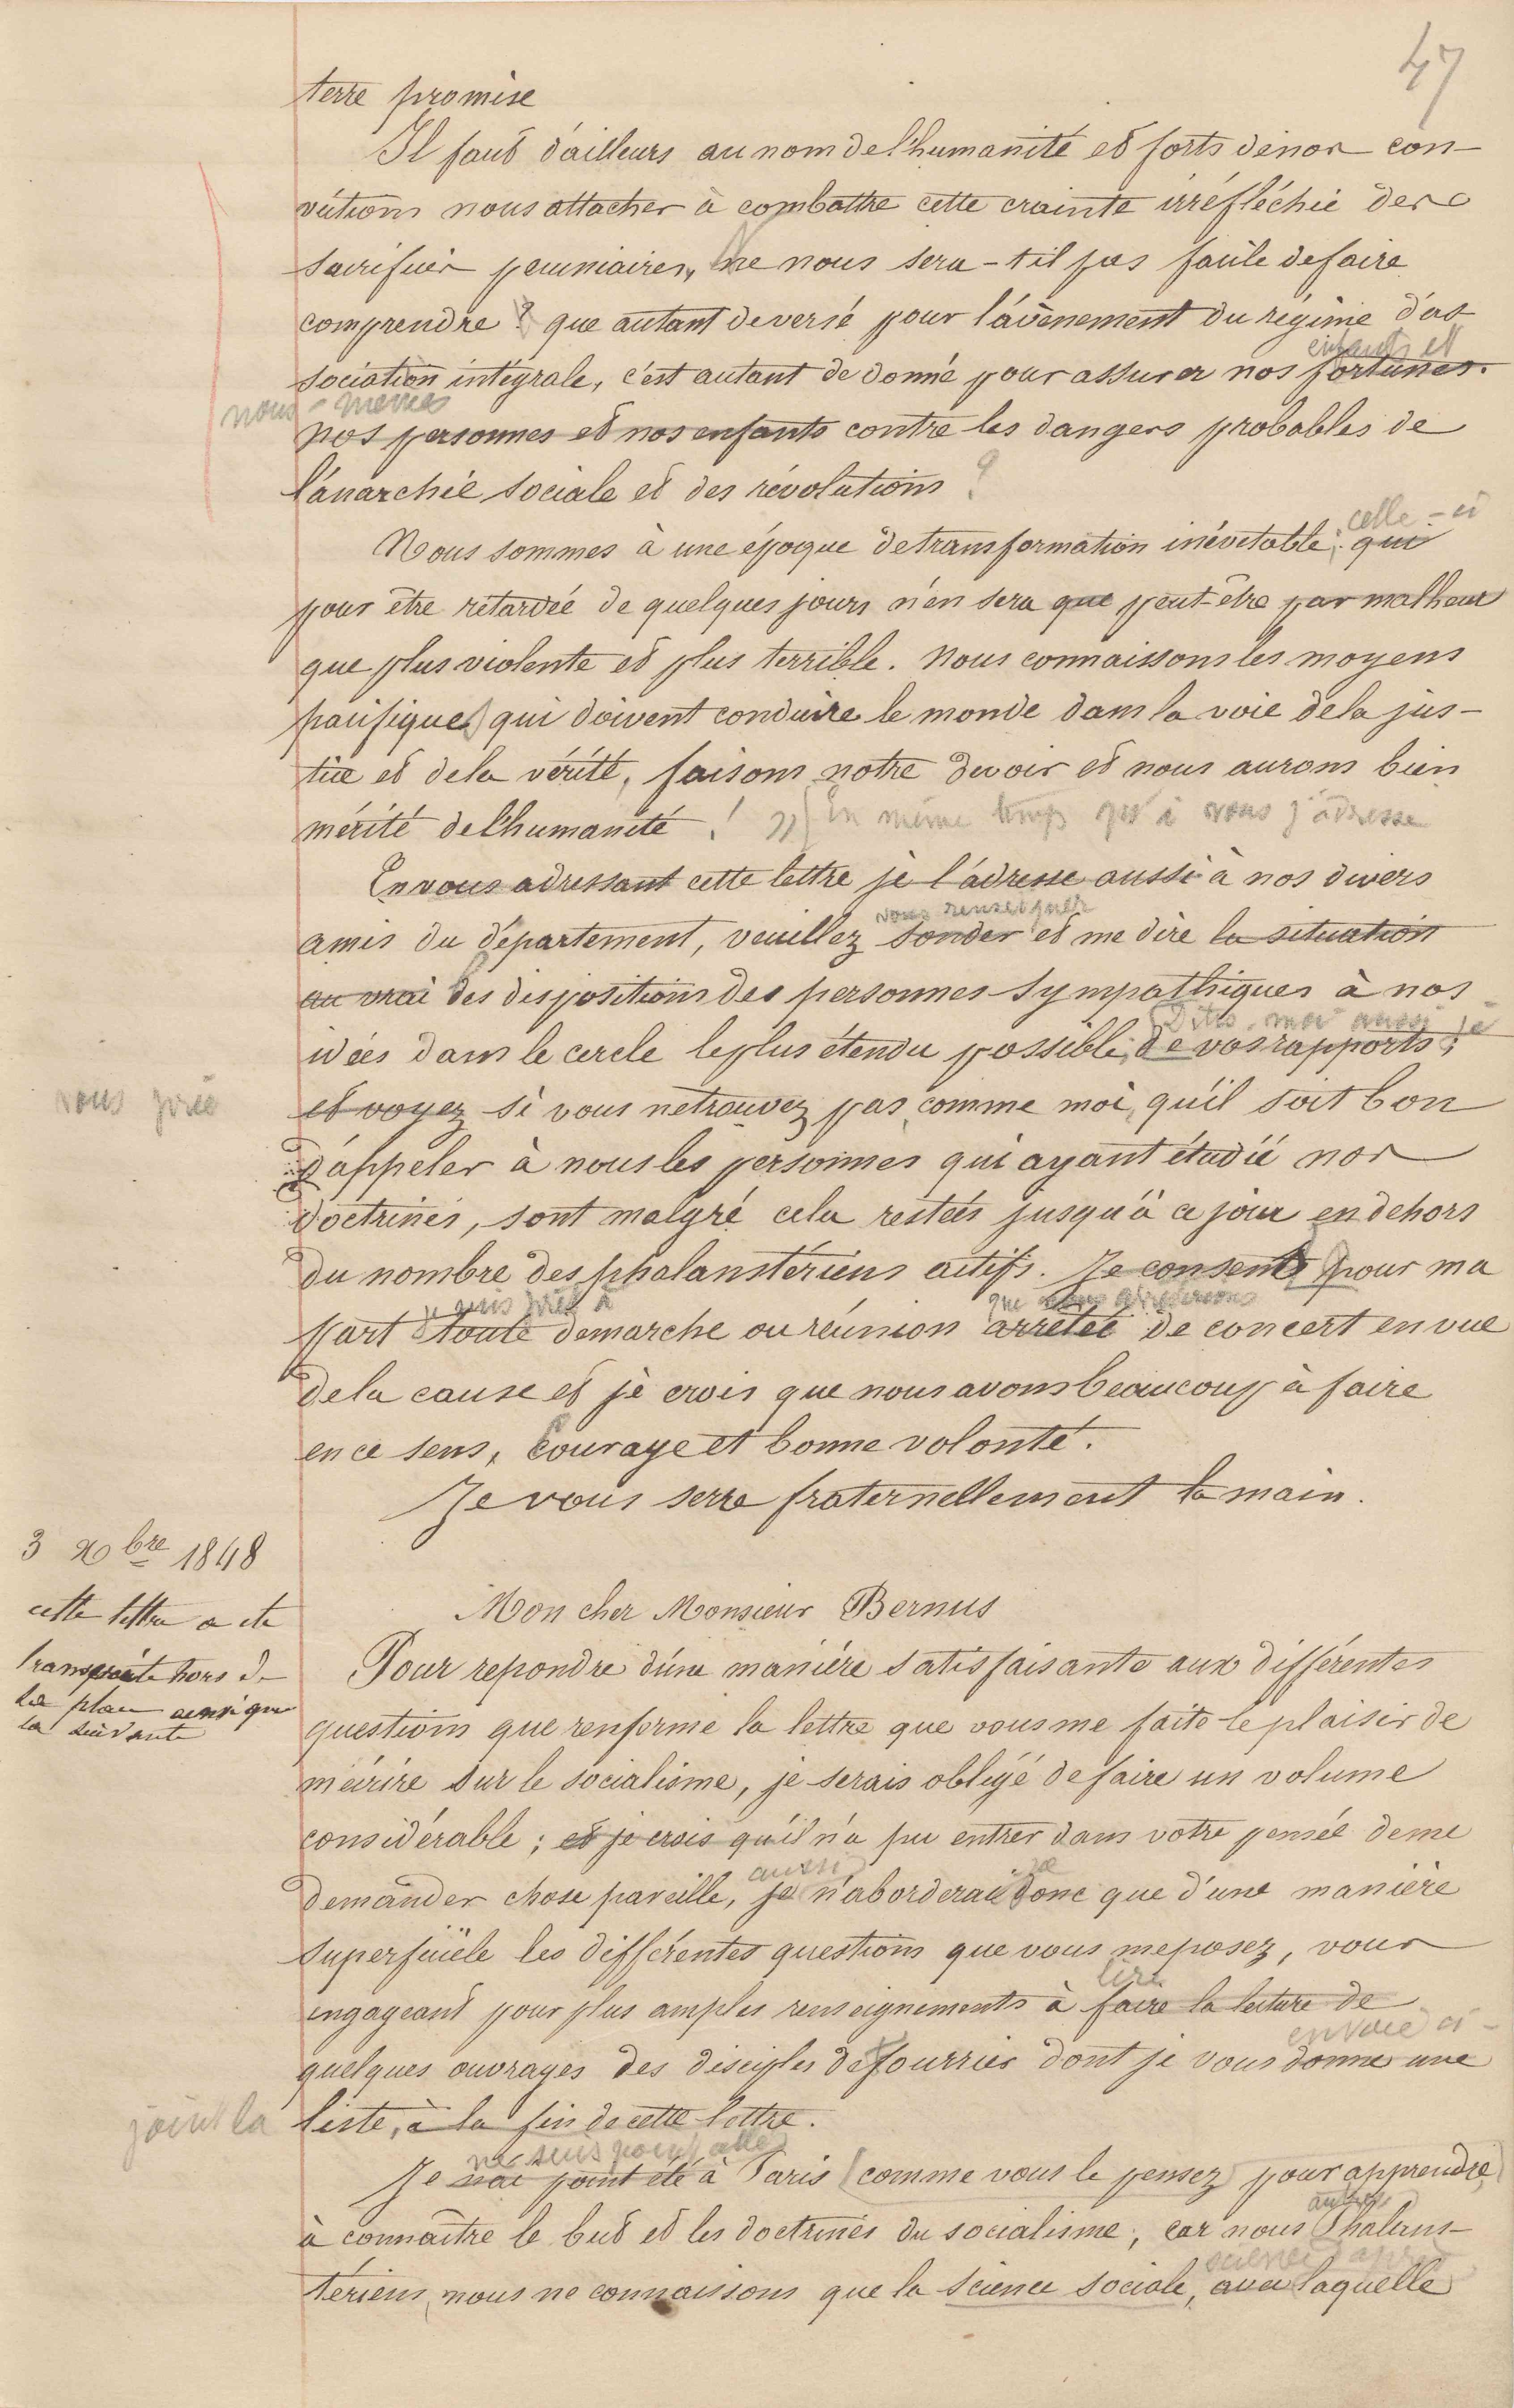 47
terre promise
Il faut d'ailleurs au nom de l'humanité et forts de nos con-
victions nous attacher à combattre cette crainte irréfléchie des
sacrifices pecuniaires, ne nous sera-t-il pas facile de faire
comprendre ? que autant de versé pour l'avènement du régime d'as
enfants et
sociation intégrale, c'est autant de donné pour assurer nos fortunes.
nous-memes
nos personnes et nos enfants contre les dangers probables de
l'anarchie sociale et des révolutions ?
celle-ci
Nous sommes à une époque de transformation inévitable ; qui
pour être retardée de quelques jours n'en sera que peut-être par malheur
que plus violente et plus terrible. Nous connaissons les moyens
pacifiques qui doivent conduire le monde dans la voie de la jus-
tice et de la vérité, faisons notre devoir et nous aurons bien
mérité de l'humanité ! » En même temps qu'à vous j'adresse
En vous adressant cette lettre je l'adresse aussi à nos divers
vous renseigner
amis du département, veuillez sonder et me dire la situation
au vrai des dispositions des personnes sympathiques à nos
Dites-moi aussi je
idées dans le cercle le plus étendu possible, de vos rapports ;
vous prie
et voyez si vous ne trouvez pas, comme moi, qu'il soit bon
d'appeler à nous les personnes qui ayant étudié nos
doctrines, sont malgré cela restées jusqu'à ce jour en dehors
du nombre des phalanstériens actifs. Je consent pour ma
je suis prêt à
que nous
part toute demarche ou réunion arrêtée de concert en vue
de la cause et je crois que nous avons beaucoup à faire
en ce sens, courage et bonne volonté.
Je vous serre fraternellement la main.
3 Xbre 1848
cette lettre a ete
transportée hors de
sa place ainsi que
la suivante
Mon cher Monsieur Bernus
Pour repondre d'une manière satisfaisante aux différentes
questions que renferme la lettre que vous me faite le plaisir de
m'écrire sur le socialisme, je serais obligé de faire un volume
considérable ; et je crois qu'il n'a pu entrer dans votre pensée de me
aussi
demander chose pareille, je n'aborderai donc que d'une manière
superficiële les différentes questions que vous me posez, vous
lire
engageant pour plus amples renseignements à faire la lecture de
envoie ci-
quelques ouvrages des disciples de fourrier dont je vous donne une
joint la
liste, à la fin de cette lettre.
ne suis point allé
Je n'ai point été à Paris (comme vous le pensez) pour apprendre
autres
à connaître le but et les doctrines du socialisme, car nous Phalans-
science d'après
tériens, nous ne connaissons que la science sociale, avec laquelle